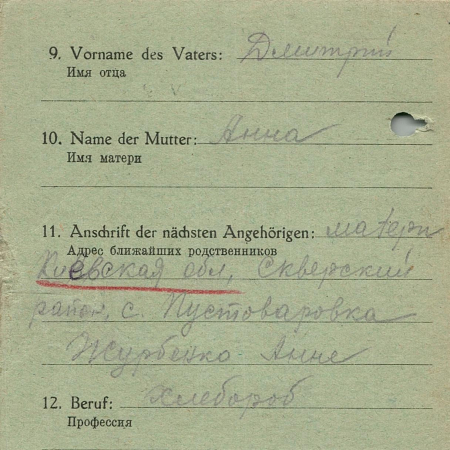 9. Vorname des Vaters: Дмитрий
Имя отца
10. Name der Mutter: Анна
Имя матери
11. Anschrift der nächsten Angehörigen: матери
Адрес ближайших родственников
Киевская обл, Скверский
район, с. Пустоваровка
Журбенко Анне
12. Beruf: Хлебороб
Профессия